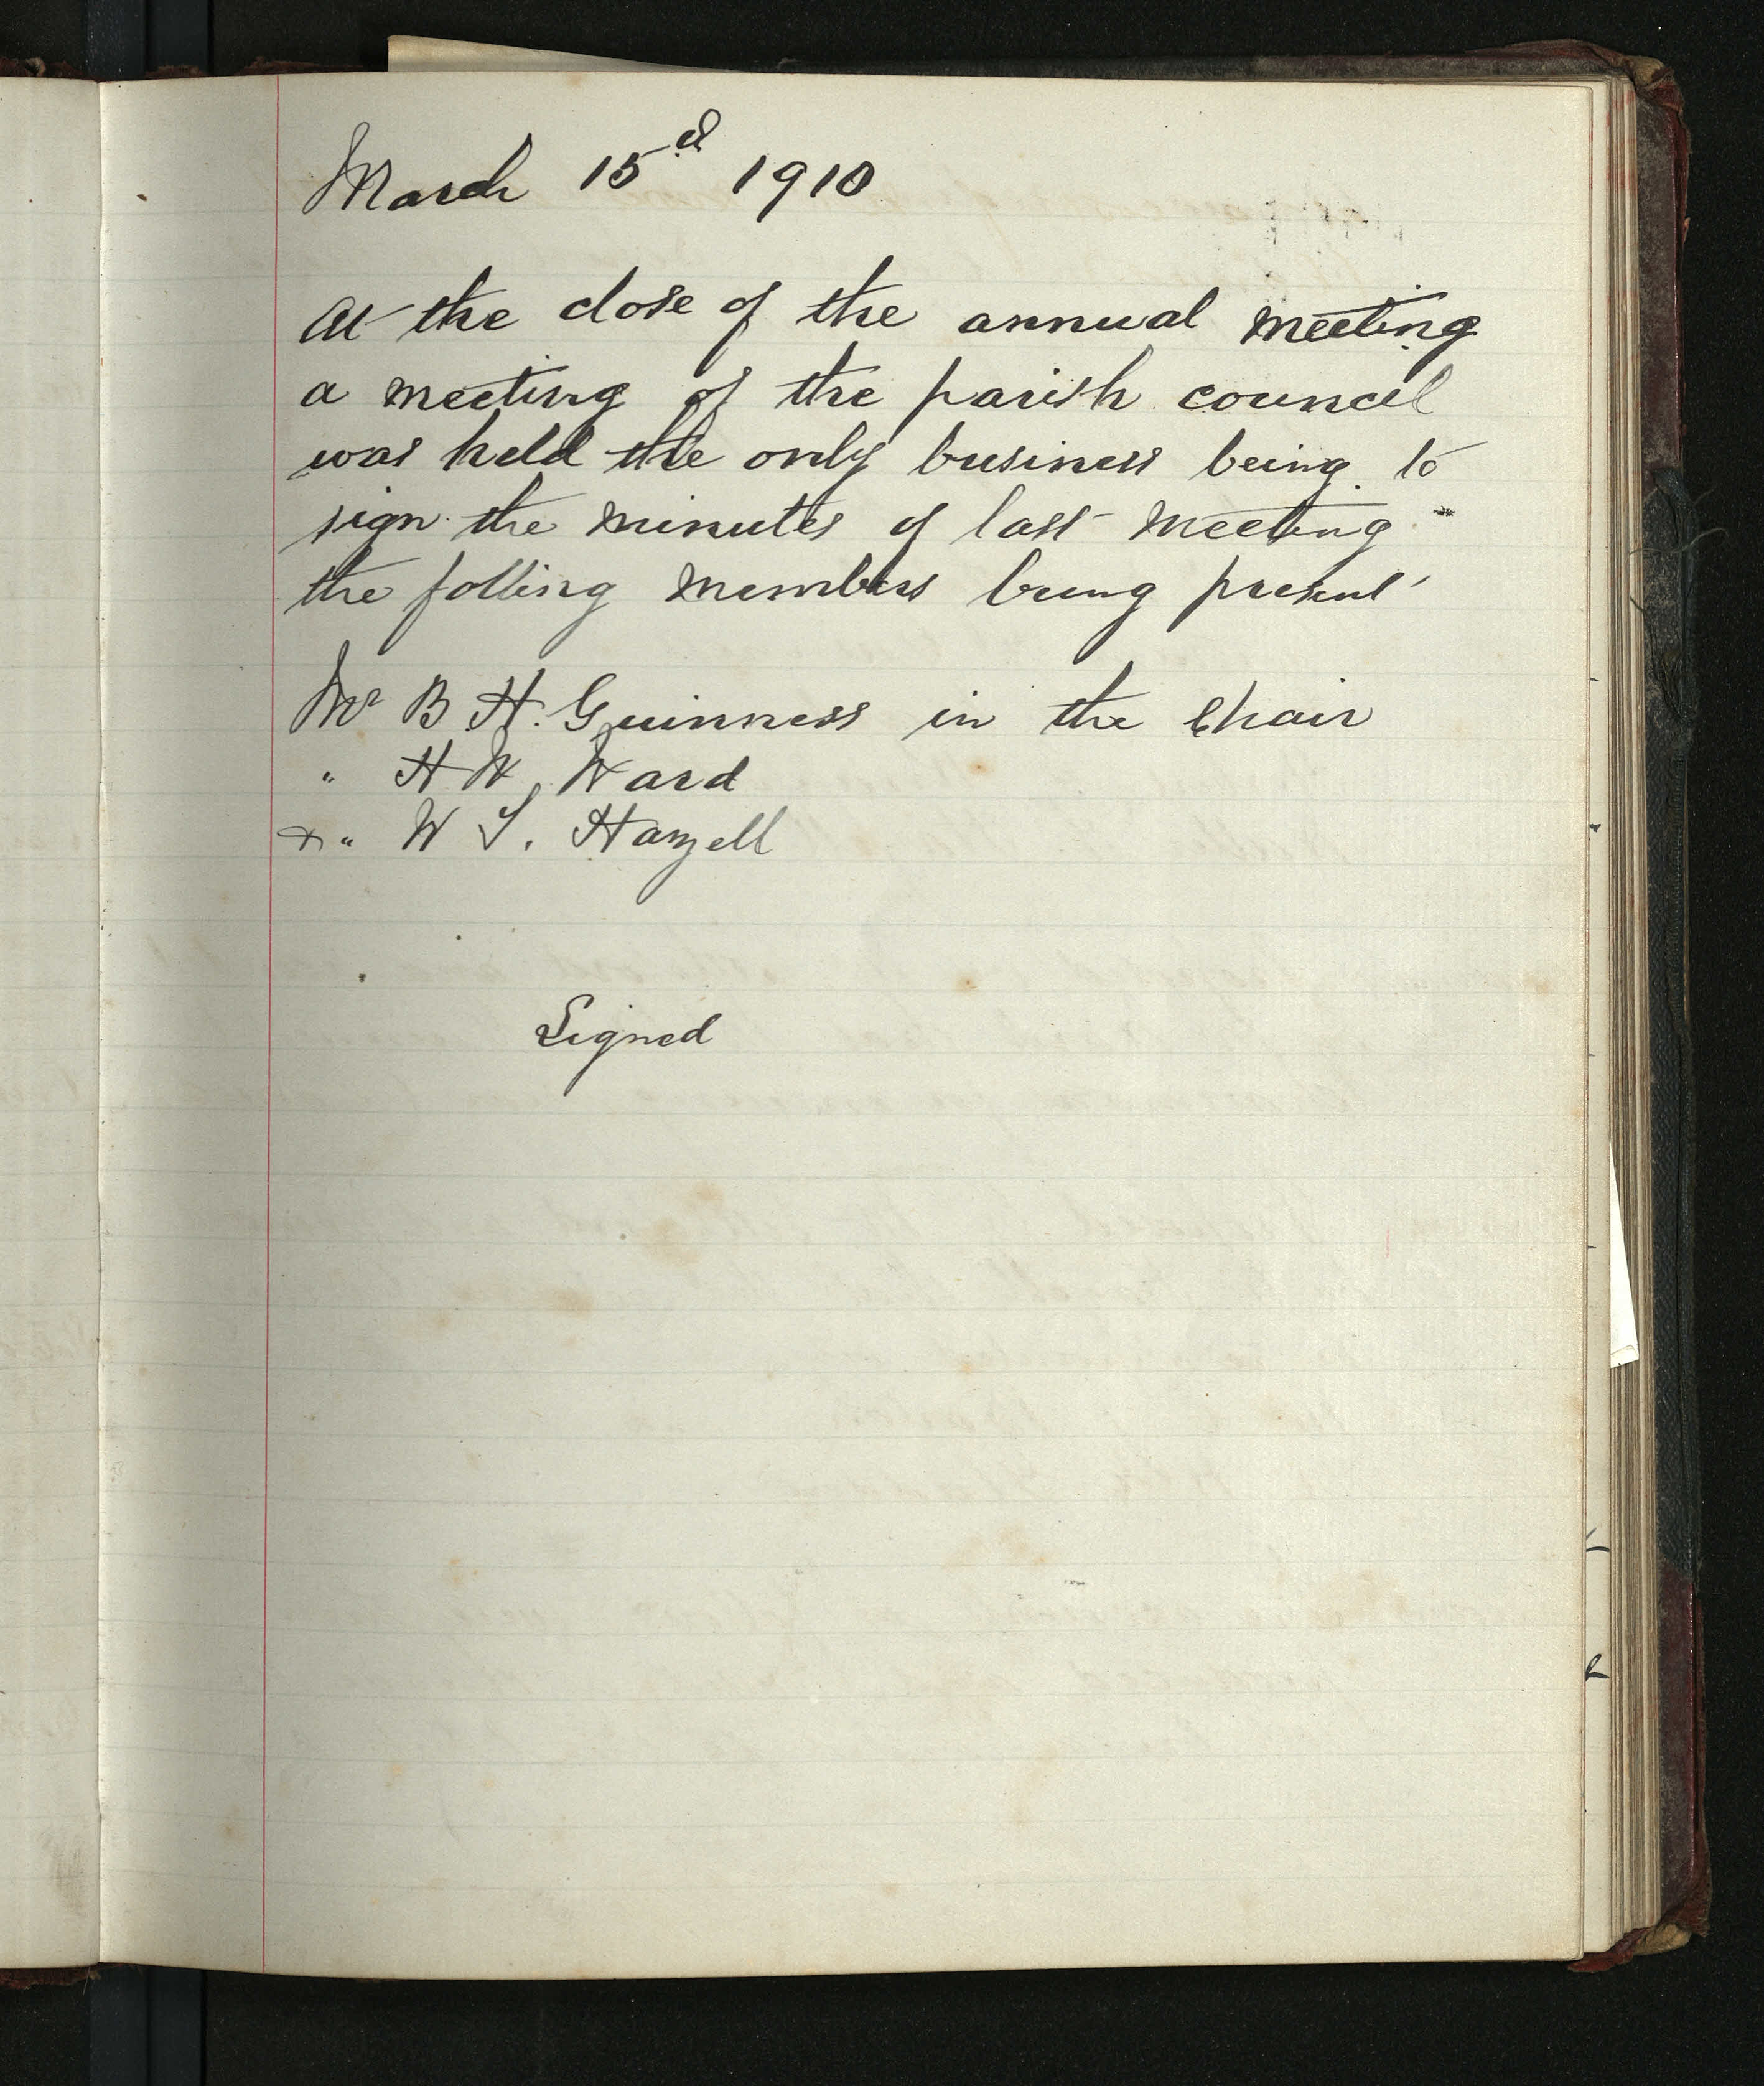 March 15d 1910
At the close of the annual meeting
a meeting of the parish council
was held the only business being to
sign the minutes of last meeting
the folling members being present
Mr B. H. Guinness in the Chair
" H W Ward
+ " W S. Hazell
Signed